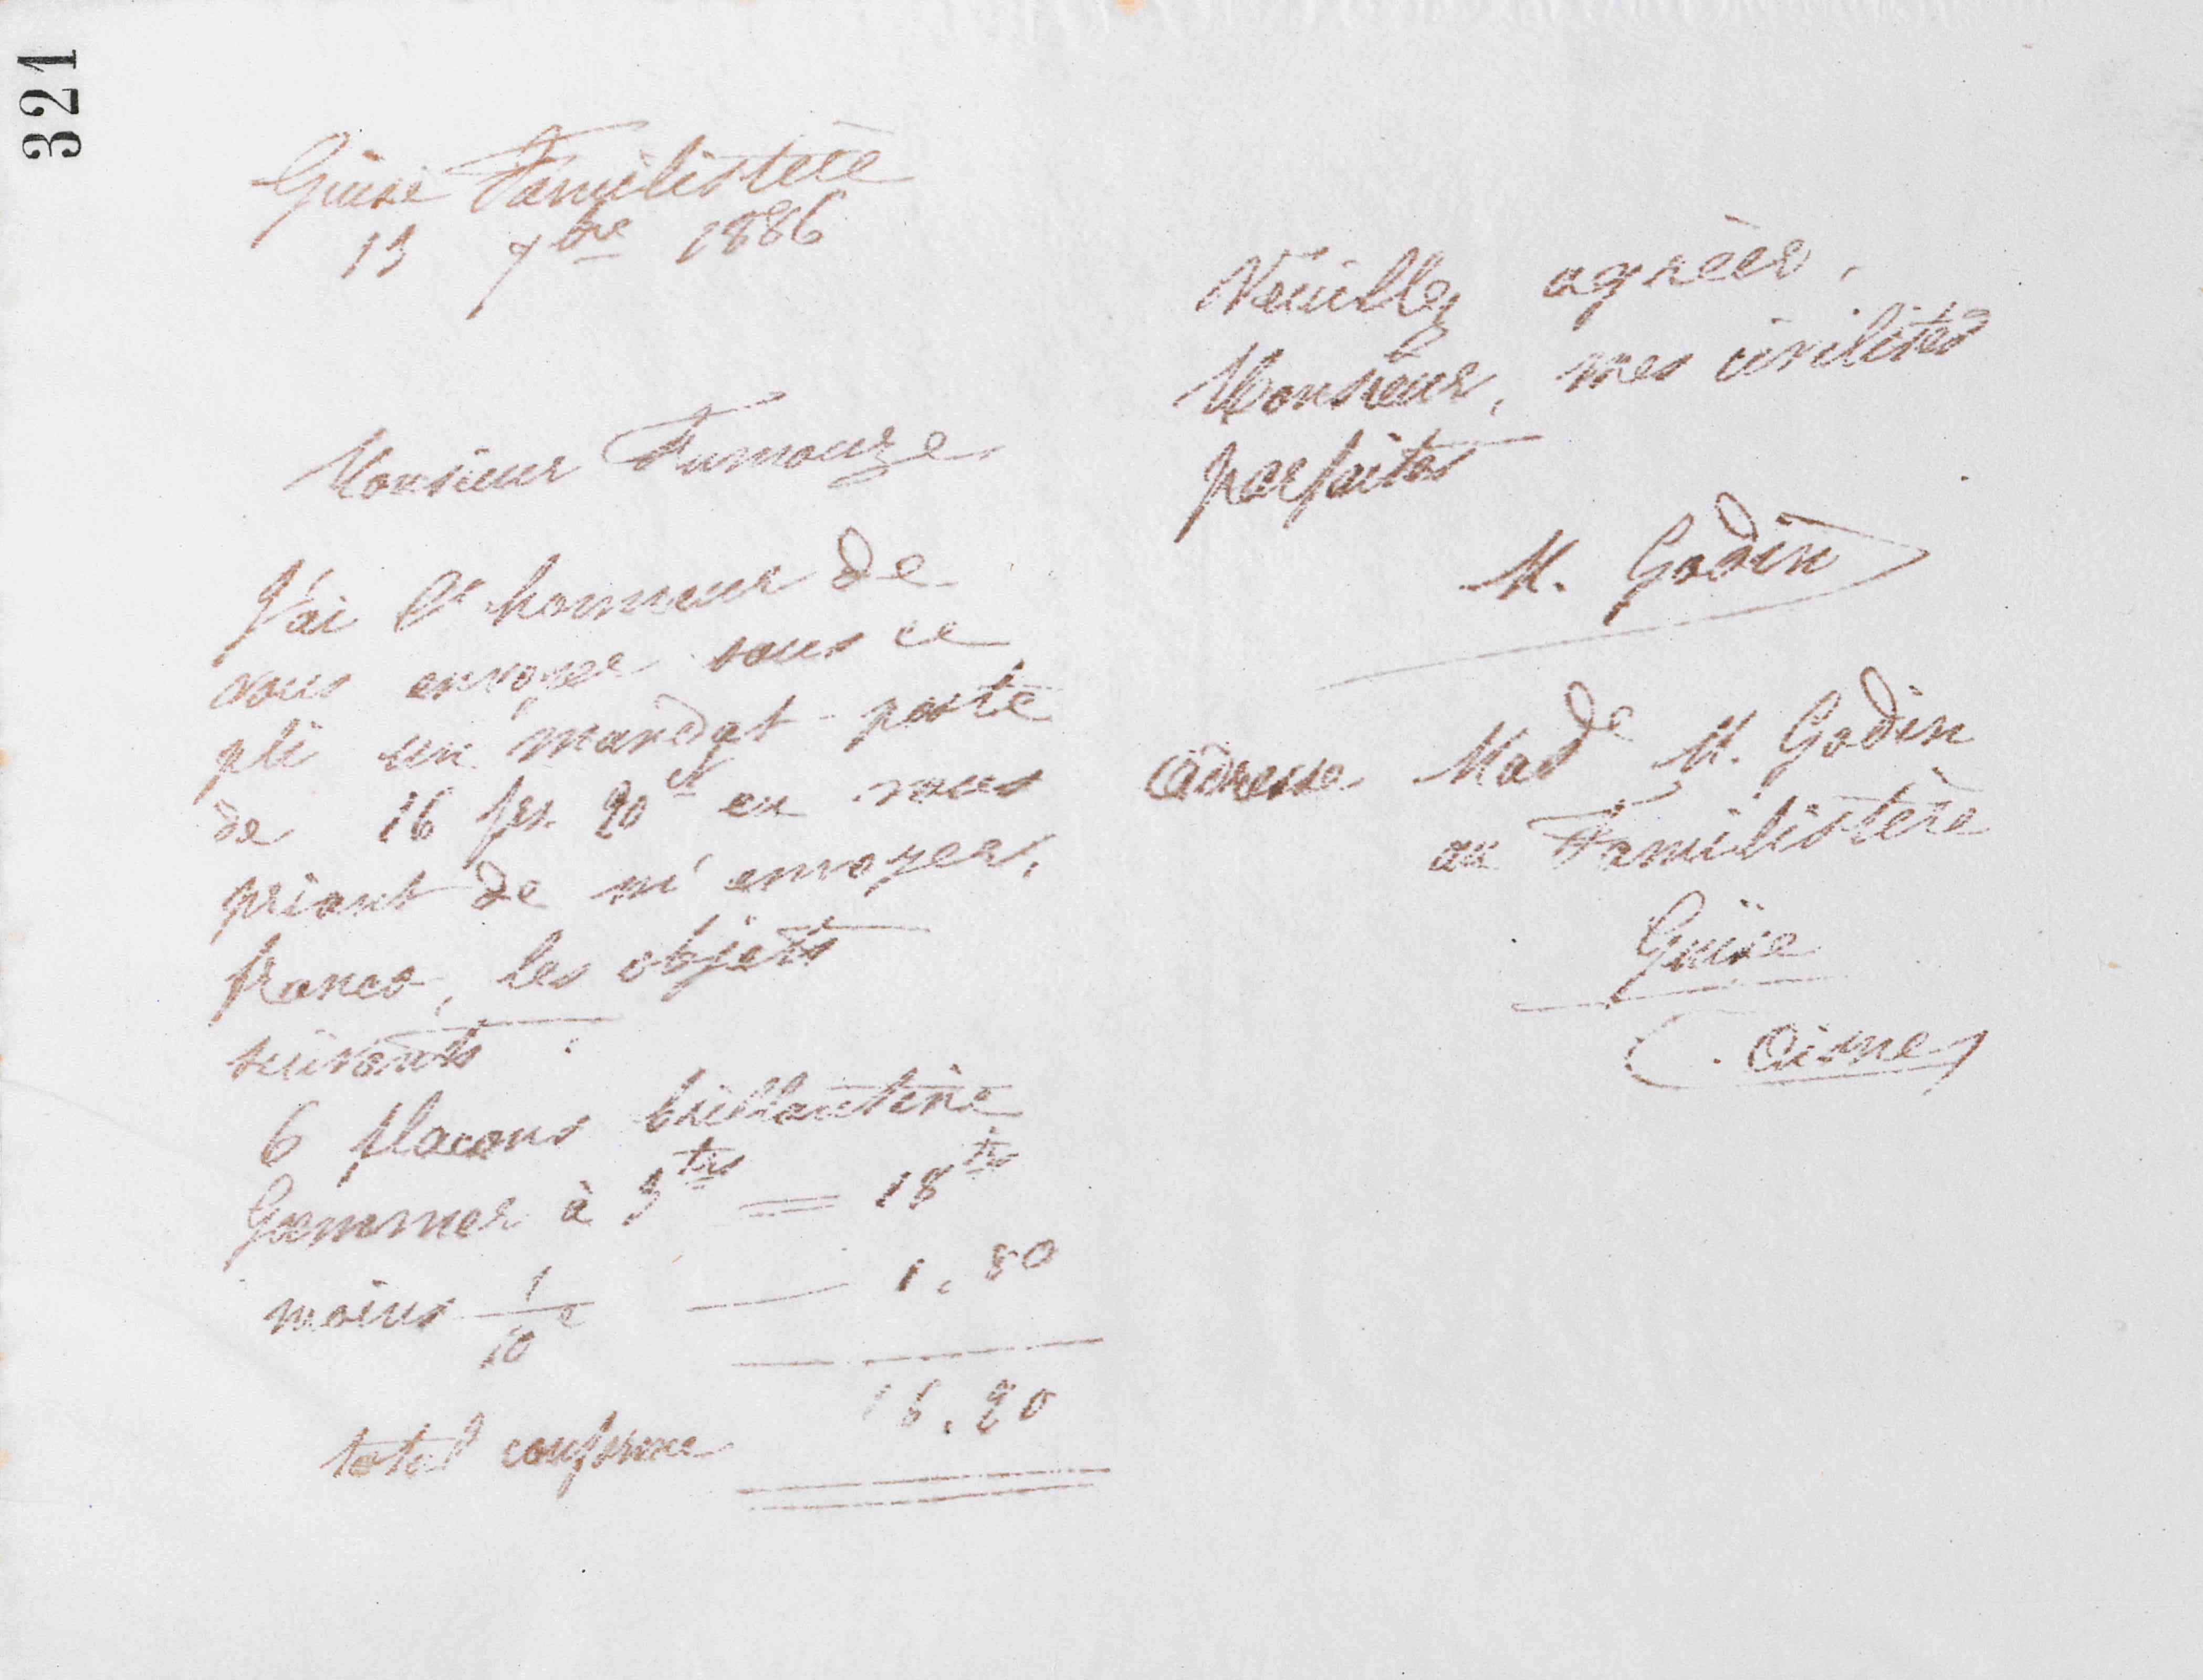 321
Guise Familistère
13 7bre 1886
Monsieur Fumouze
J'ai l'honneur de
vous envoyer sous ce
pli un mandat-poste
de 16 frs. 20 en vous
priant de m'envoyer,
franco, les objets
suivants :
6 flacons brillantine
Gommer à 3 frs = 18 frs
moins 1/10e — 1.80
16.20
total conforme
Veuillez agréer,
Monsieur, mes civilités
parfaites
M. Godin
adresse Made M. Godin
au Familistère
Guise
(Aisne)